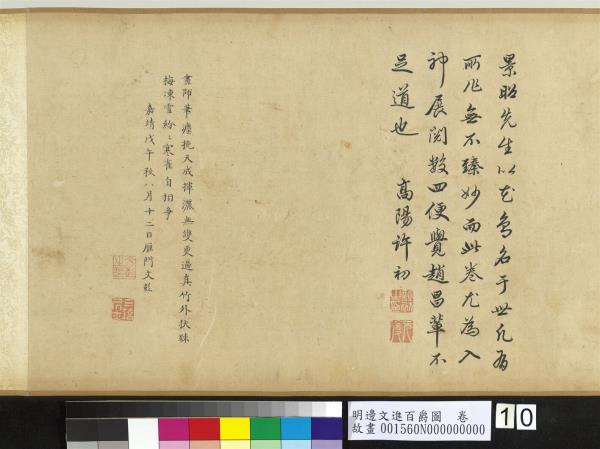 景昭先生以花鳥名于世凡有
所作無不臻妙而此卷尤為入
神展閱數四便覺趙昌輩不
足道也 高陽許初
畫師筆應挽天成擇濃無變更逼真竹外扶疎
梅凍雪紛〻寒雀自相爭
嘉靖戊午秋八月十二日雁門文彭
明邊文進百爵圖 卷
故畫 001560N000000000
10